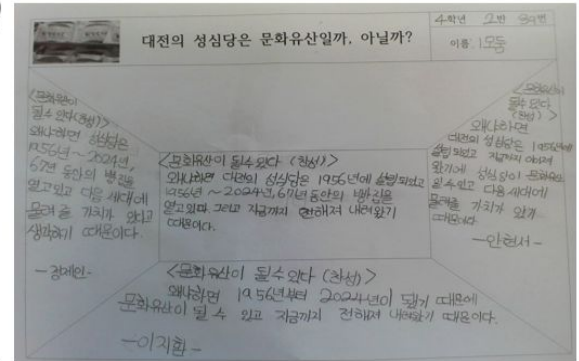 대전의 성심당은 문화유산일까, 아닐까?
4학년 2반
이름: 모둠
<문화유산이
될수 있다(찬성)>
왜냐하면 성심당은
1956년~2024년,
67년 동안의 빵집을
열고있고 다음 세대에
물려줄 가치가 있다고
생각하기 때문이다.
-정제인-
<문화유산이 될수있다 (찬성)>
왜냐하면 대전의 성심당은 1956년에 설립되었고
1956년 ~ 2024년, 67년동안의 빵집을
열고있다. 그리고 지금까지 전해져 내려왔기
때문이다.
<문화유산이
될수 있다
(찬성)>
왜냐하면
대전의 성심당은 1956년에
설립 되었고 지금까지
왔기에 성심당이 문화유산
일 수있고 다음 세대에
물려줄 가치가 있기
때문이다.
-안현서-
<문화유산이 될수있다 (찬성)>
왜냐하면 1956년부터 2024년이 됐기 때문에
문화유산이 될 수 있고 지금까지 전해져 내려왔기 때문이다.
-이지환-